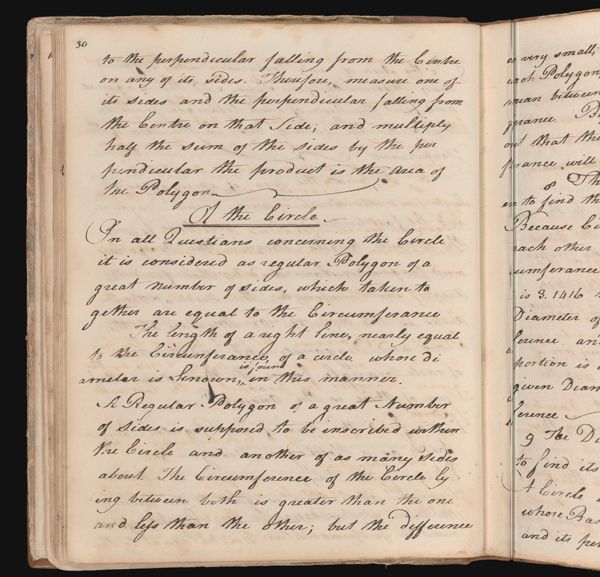 30
to the perpendicular falling from the Centre
on any of its sides. Therefore, measure one of
its sides and the perpendicular falling from
the Centre on that Side; and multiply
half the sum of the sides by the per
pendicular the product is the area of
the Polygon
Of the Circle
In all Questians concerning the Circle
it is considered as regular Polygon of a
great number of sides, which taken to
gether are equal to the Circumferance
The length of a right line, nearly equal
to the Circumferance, of a circle whose Di
is found
ameter is known, in this manner.
A Regular Polygon of a great Number
of sides is supposed to be inscribed within
the Circle and another of as many sides
about. The Circumference of the Circle ly
ing between both is greater than the one
and less than the other; but the difference
very small,
each Polygon
mean between
ferance. B
out that the
ferance will
8 Th
to find th
Because Ci
each other
cumferance
is 3.1416
Diameter of
ference and
portion is
given Diam
ference
9 The Di
to find its
A Circle
whose Bas
and its per